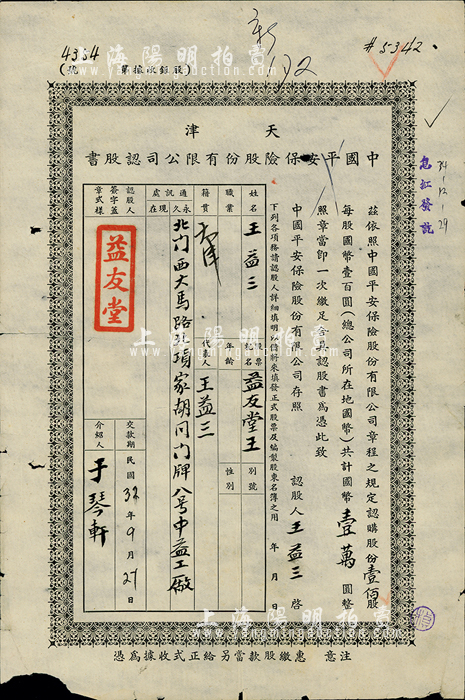 上海陽明拍賣
4364
(號 第據收銀股)
#5342
新
632
天津
中國平安保險股份有限公司認股書
茲依照中國平安保險股份有限公司章程之規定認購股份壹佰股
每股國幣壹百圓(總公司所在地國幣)共計國幣壹萬圓整
照章當即一次繳足合具認股書為憑此致
中國平安保險股份有限公司存照
認股人 王益三 啓
年 月 日
下列各項務請認股人詳細填明以備將來填發正式股票及編製股東名簿之用
姓名 王益三
股票紀名 益友堂王
別號
職業
年齡
性別
籍貫 天津
代表人 王益三
通訊處 永久 現在
北门西大馬路張項家胡同门牌八号中益工廠
認股人簽字蓋章式樣
益友堂
交款期 民國32年9月27日
介紹人 于琴軒
息紅發訖
34-12-29
注意 惠繳股款當另給正式收據為憑
上海陽明拍賣